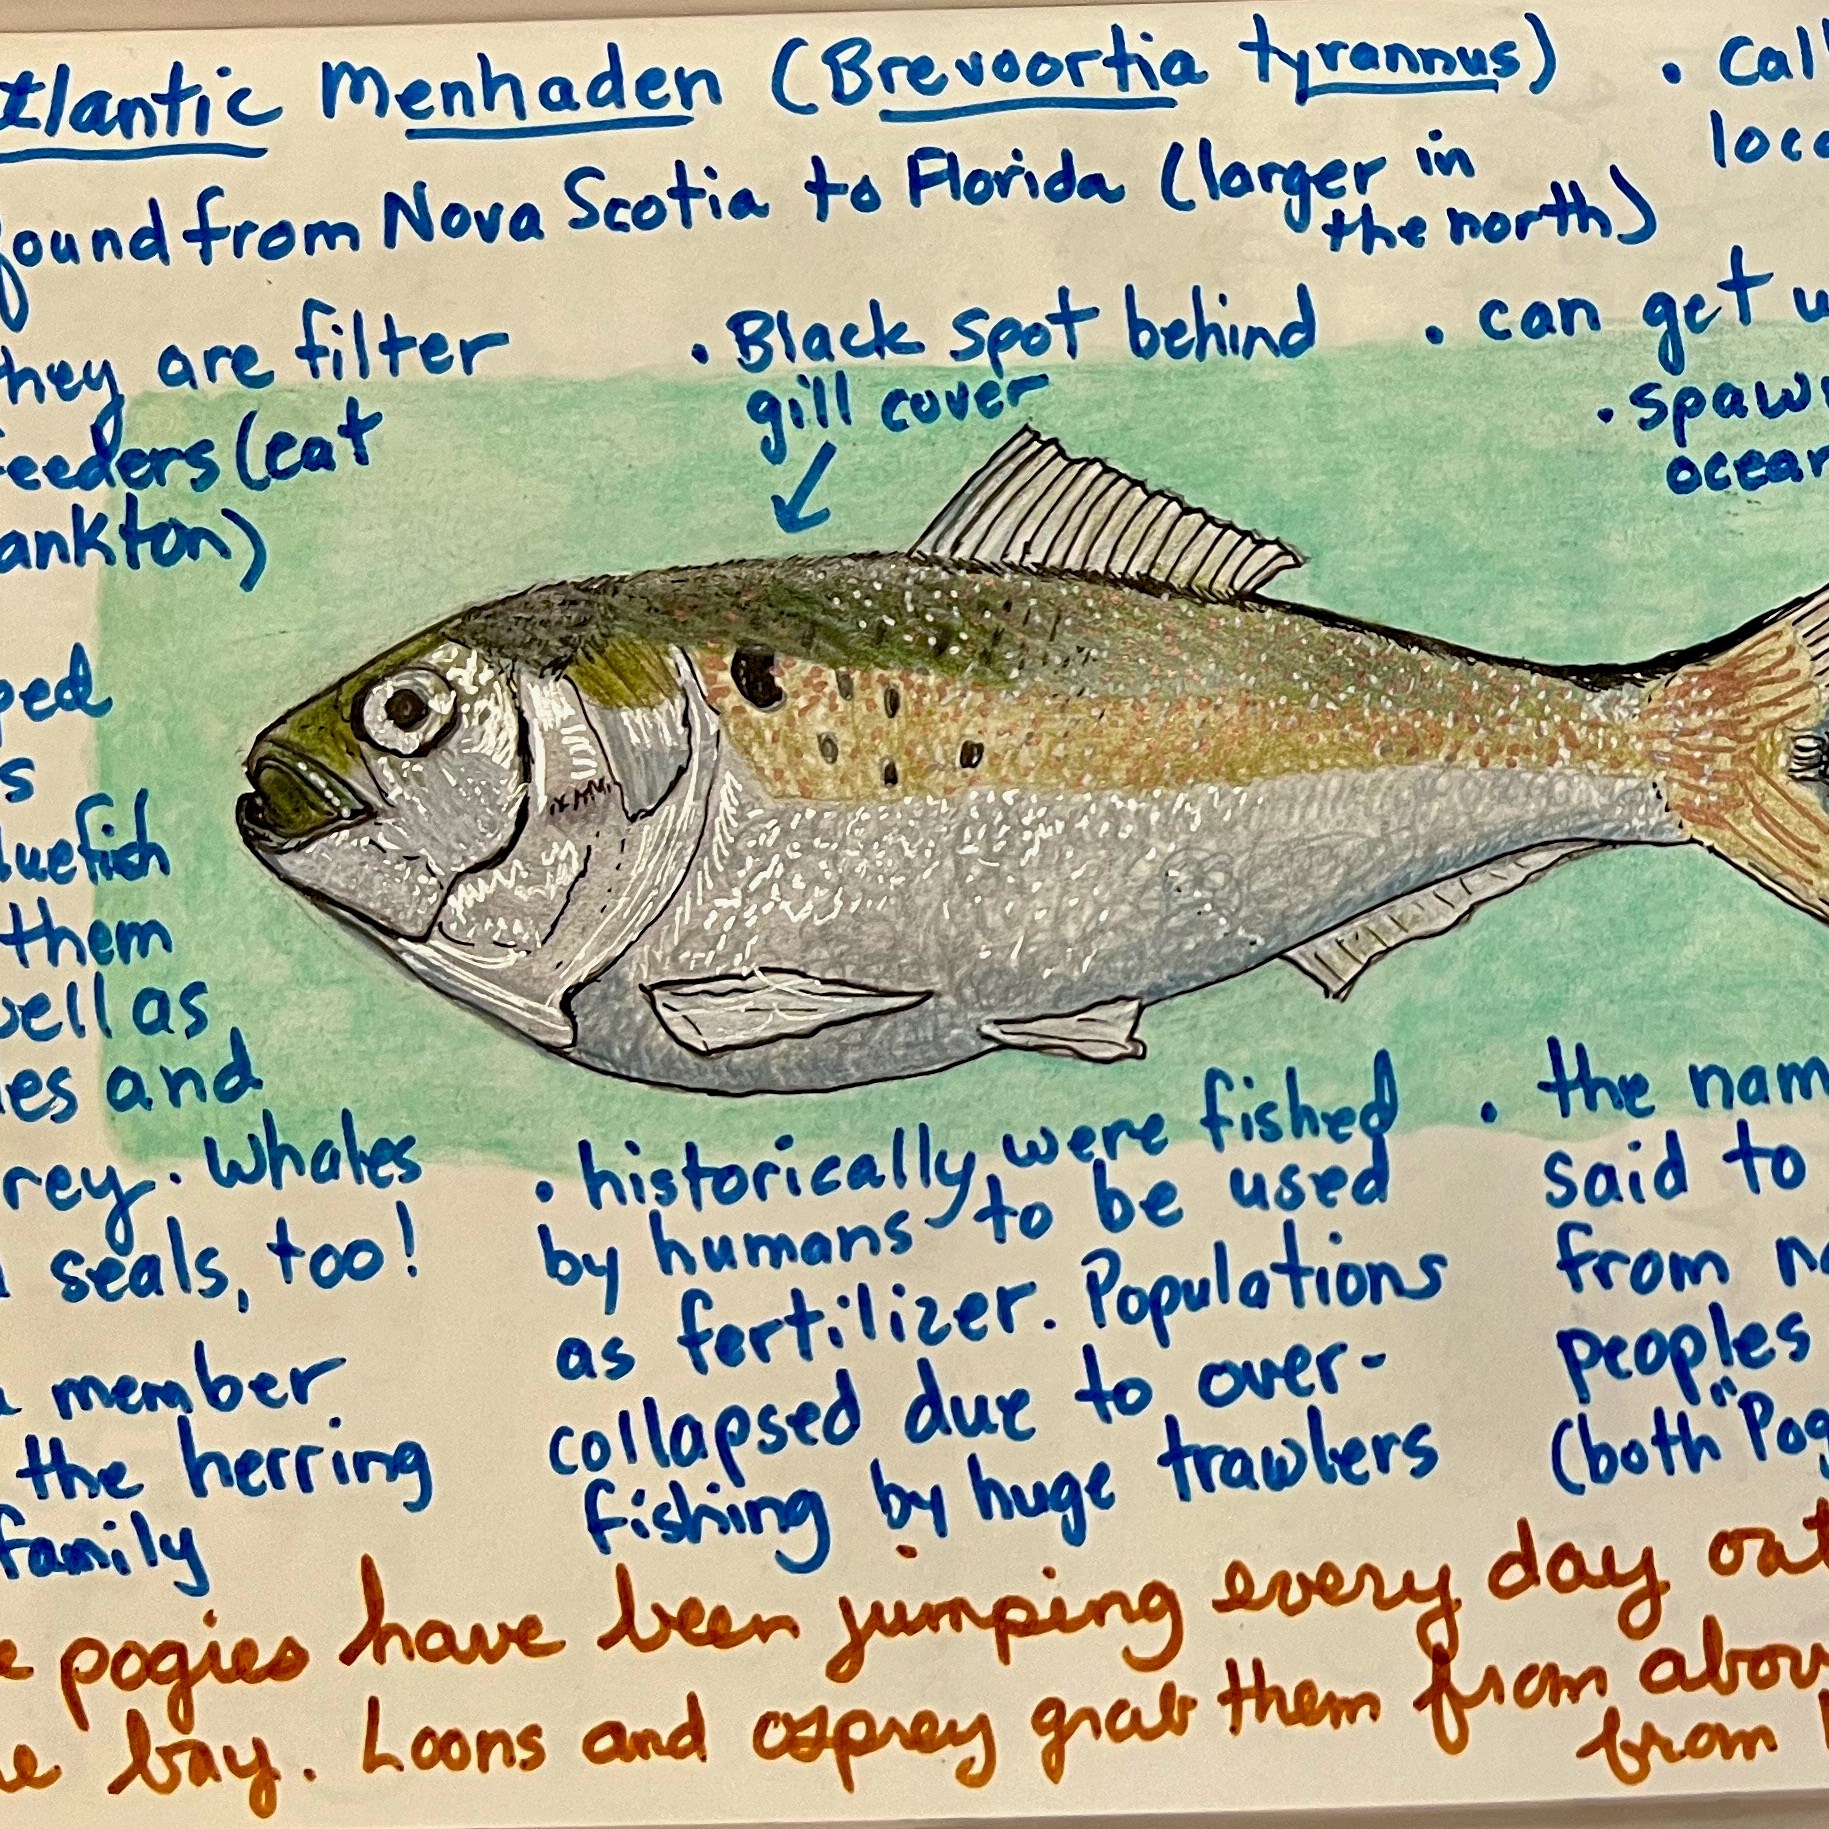 tlantic Menhaden (Brevoortia tyrannus)
found from Nova Scotia to Florida (larger in
the north)
• Call
loca
they are filter
feeders (eat
ankton)
• Black spot behind
gill cover
• can get u
• spawn
ocean
ped
s
luefish
them
well as
ies and
rey. Whales
d seals, too!
a member
the herring
family
• historically were fished
by humans to be used
as fertilizer. Populations
collapsed due to over-
fishing by huge trawlers
• the nam
said to
from na
peoples
(both "Pog
e pogies have been jumping every day out
e bay. Loons and osprey grab them from abov
from b